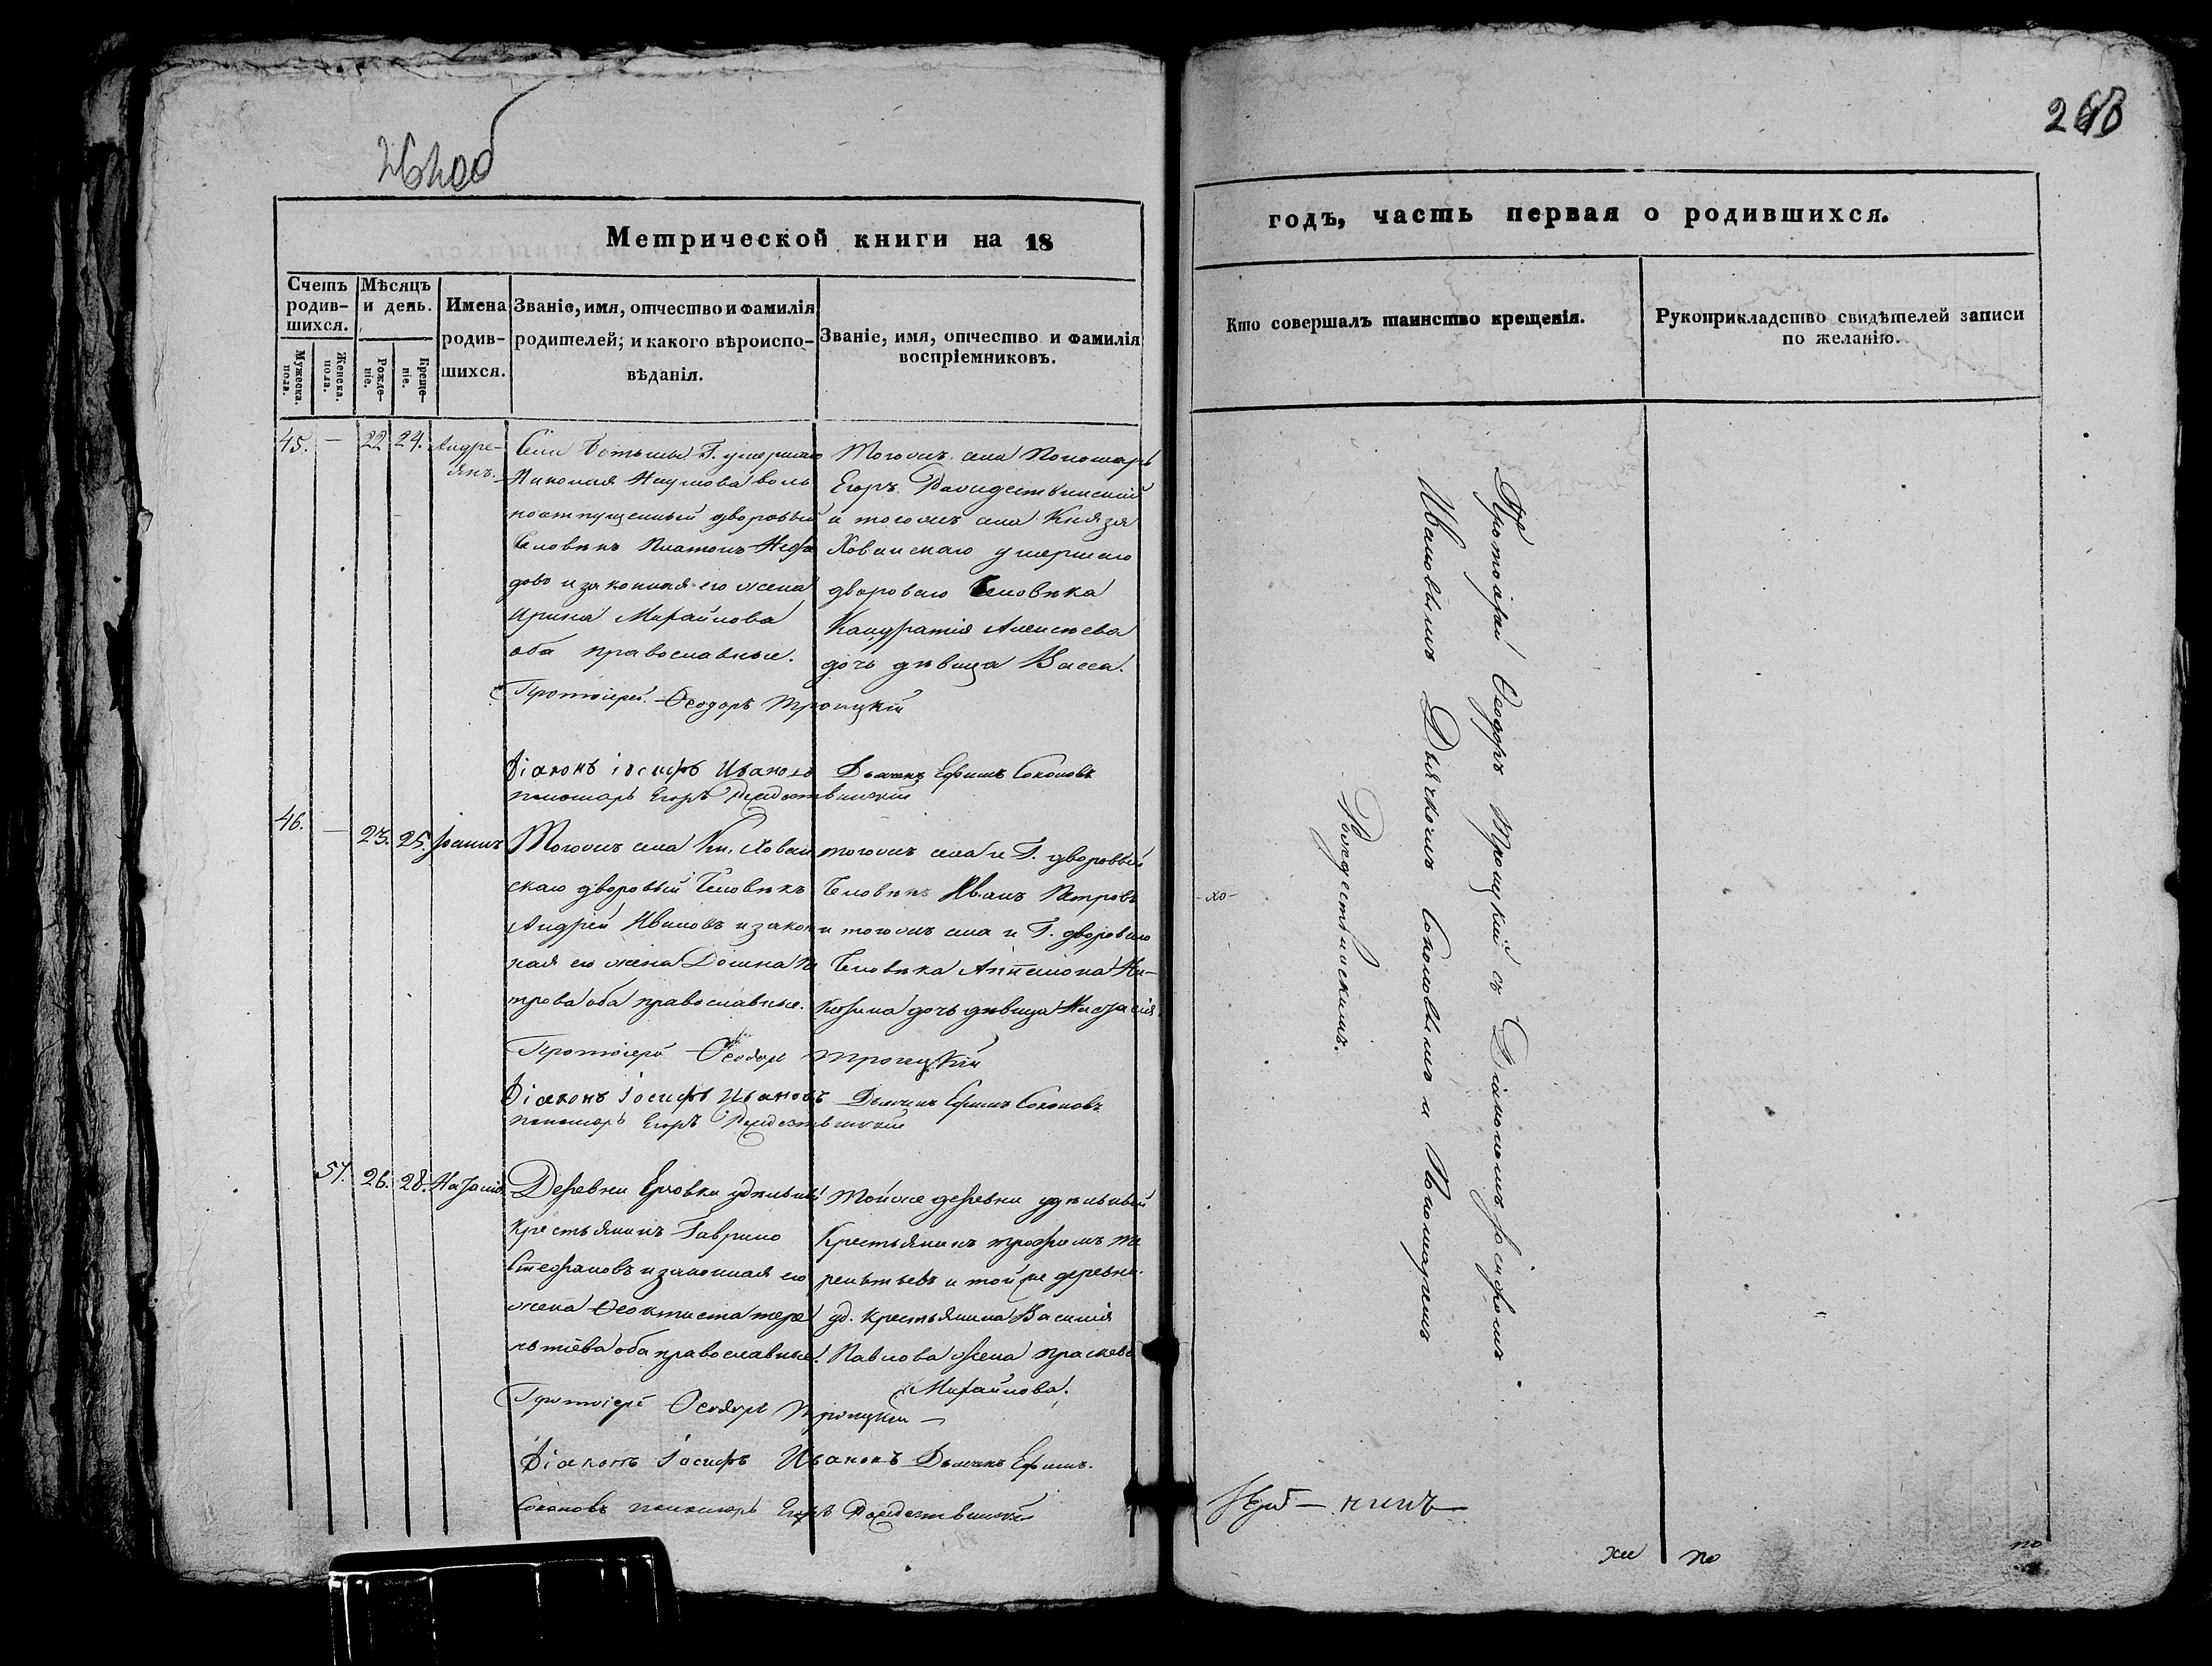 Метрической книги на 18
Счетъ родив-шихся.
Мужеска. пола.
Женска. пола.
Мѣсяцъ и день.
Рожде-ніе.
Креще-ніе.
Имена родив-шихся.
Званіе, имя, отчество и фамилія
родителей; и какого вѣроиспо-
вѣданія.
Званіе, имя, отчество и фамилія
воспріемниковъ.
45. — 22 24. Андре-
янъ.
Села Г. умершаго
Николая Наумова воль
ноотпущенный дворовый
Человѣкъ Платонъ
и законная его жена
Ирина Михайлова
оба православные.
Тогожъ села Пономарь
Егоръ Рождественскій
и тогожъ села Князя
Хованскаго умершаго
двороваго Человѣка
Кандратія Алексѣева
дочь дѣвица Васса.
Протоіерей Ѳеодоръ Троицкій
Діаконъ Іосифъ Ивановъ Дьячекъ Ефимъ Соколовъ
пономарь Егоръ Рождественскій
46. — 23. 25. Іоаннъ
Тогожъ села Кн. Хован
скаго дворовый Человѣкъ
Андрей Ивановъ и закон
ная его жена Домна Пе
трова оба православные.
тогожъ села и Г. дворовый
Человѣкъ Иванъ Петровъ
и тогожъ села и Г. двороваго
Человѣка
дочь дѣвица
Протоіерей Ѳеодоръ Троицкій
Діаконъ Іосифъ Ивановъ Дьячекъ Ефимъ Соколовъ
пономарь Егоръ Рождественскій
57. 26. 28.
Деревни удѣльный
Крестьянинъ Гаврило
Стефановъ и законная его
жена Ѳеоктиста тере
нтіева оба православные.
Тойже деревни удѣльный
Крестьянинъ трофимъ те
рентьевъ и тойже деревни
уд. крестьянина Василія
Павлова жена праскева
Михайлова.
Протоіерей Ѳеодоръ Троицкій
Діаконъ Іосифъ Ивановъ Дьячекъ Ефимъ
Соколовъ пономарь Егоръ Рождественскій
годъ, часть первая о родившихся.
Кто совершалъ таинство крещенія.
Рукоприкладство свидѣтелей записи
по желанію.
Протоіерей Ѳеодоръ Троицкій съ Діакономъ Іосифомъ
Ивановымъ Дьячкомъ Соколовымъ и Пономаремъ
Рождественскимъ.
-хо-
по
по